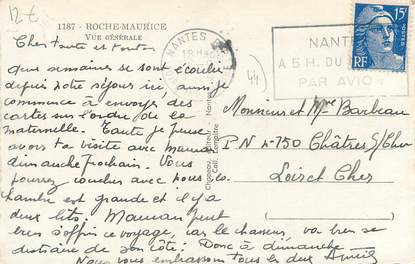 12€
1187 - ROCHE-MAURICE
VUE GÉNÉRALE
NANTES
15F
POSTES
RF
NANTES
A 5 H. DU
PAR AVION
44
Cher tante et tonton
deux semaines se sont écoulées
depuis notre séjour ici, aussi je
commence à envoyer des
cartes sur l'ordre de la
maternelle. Tante je pense
avoir ta visite avec maman
dimanche prochain. Vous
pourrez coucher avec nous la
chambre est grande et il y a
deux lits. Maman peut
bien s'offrir ce voyage, car le chasseur va bien se
distraire de son côté. Donc à dimanche
Nous vous embrassons tous les deux
Monsieur et Mme Barbeau
PN 4150 Châtres s/Cher
Loir et Cher
Chapeau, - Nantes